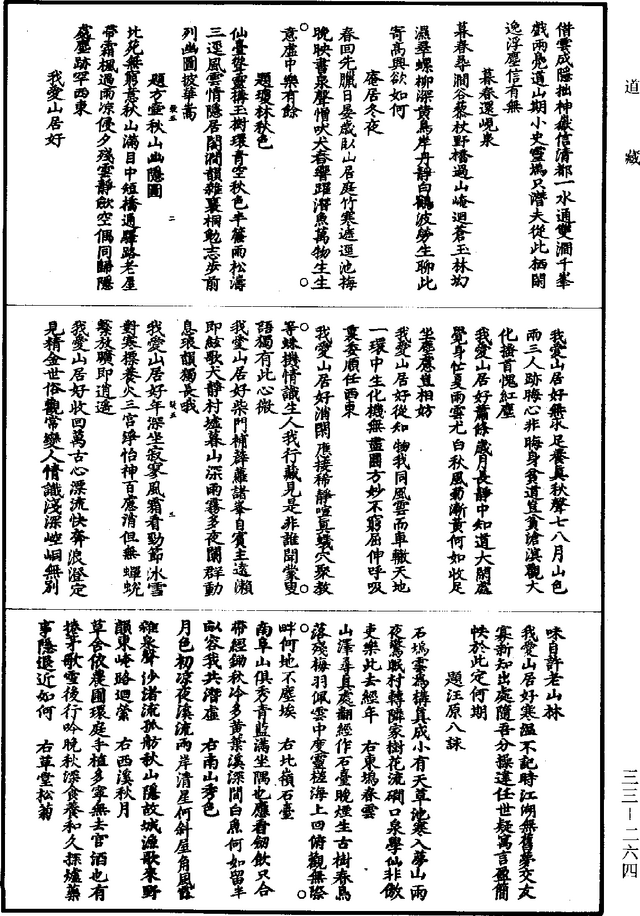 道藏
借雲成隱拙神嶽信清都一水通雙澗千峯
戲兩鳬道山期小史靈塢只潛夫從此栖閑
逸浮塵信有無
暮春還峴泉
暮春尋澗谷藜杖野橋過山崦迴蒼玉林㘭
濕翠螺柳深黄鳥岸丹靜白鶴波勞生聊此
寄高興欲如何
庵居冬夜
春回先臘日晏歲卧山居庭竹寒遮逕池梅
晚映書泉聲憎吠犬春響躍潛魚萬物生生
意虛中樂有餘
題瓊林秋色
仙臺聳靈構玉樹環青空秋色半簾雨松濤
三逕風雲情隱居閑澗韻雜襄桐勉志步前
列幽圖披華嵩
題方壺秋山幽隱圖
此死無窮意秋山滿目中短橋通驛路老屋
帶霜楓過雨凉侵夕殘雲靜斂空偶同歸隱
處塵跡罕西東
我愛山居好
我愛山居好無求足養真秋聲七八月山色
兩三人跡晦心非晦身貧道豈貧滄溟觀大
化搔首愧紅塵
我愛山居好蕭條歲月長靜中知道大閑處
覺身忙夏雨雲尤白秋風菊漸黄何如收足
坐塵慮豈相妨
我愛山居好從知物我同風雲而車轍天地
一環中生化機無盡圓方妙不窮屈伸呼吸
裏委順任西東
我愛山居好消閑應接稀靜喧見蟻穴聚散
等蛛機情識生人我行藏見是非誰聞蒙叟
語獨有此心微
我愛山居好柴門補薜蘿諸峯自賓主遠瀨
即絃歌犬靜村墟暮山深雨霧多夜闌群動
息琅韻獨長哦
我愛山居好年深坐寂寥風霜看勁節冰雪
對寒標養火三宫淨怡神百慮消但無蟬蛻
繫放曠即逍遥
我愛山居好收回萬古心漂流快奔浪澄定
見精金世俗觀常變人情識淺深崆峒無別
味自許老山林
我愛山居好寒溫不記時江湖無舊夢交友
寡新知出處隨吾分操違任世疑寓言盈簡
帙於此定何期
題汪原八詠
石塢雲爲構真成小有天草池寒入夢山雨
夜驚眠村轉隣家樹花流磵口泉學仙非傲
吏樂此去經年　右東塢春雲
山澤尋真處翻經作石臺晚煙生古樹春鳥
落殘梅羽佩雲中度靈槎海上回俯觀無際
畔何地不塵埃　右北嶺石臺
南阜山俱秀青藍滿坐隅也應看劒飲只合
帶經鋤秋冷多黄葉溪深間白魚何如留半
臥容我共潛虛　右南山秀色
月色初凉夜溪流兩岸清星何斜屋角風露
雜泉聲沙渚流孤舫秋山隱故城漁歌來野
韻東崦路迴縈　右西溪秋月
草舍依農圃環庭手植多寧無去官酒也有
捲茅歌壷後行吟晚秋深食養和久採爐藥
事隱退近如何　右草堂松菊
三三－二六四